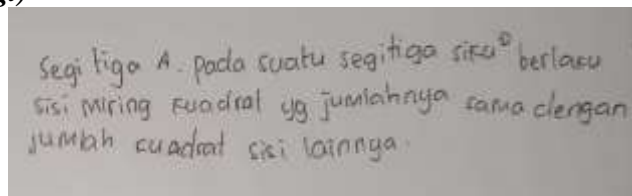 Segi tiga A. pada suatu segitiga siku² berlaku
sisi miring kuadrat yg jumlahnya sama dengan
jumlah cuadrat sisi lainnya.